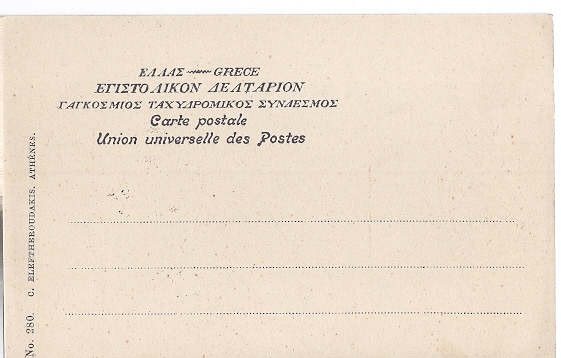 ΕΛΛΑΣ GRECE
ΕΠΙΣΤΟΛΙΚΟΝ ΔΕΛΤΑΡΙΟΝ
ΠΑΓΚΟΣΜΙΟΣ ΤΑΧΥΔΡΟΜΙΚΟΣ ΣΥΝΔΕΣΜΟΣ
Carte postale
Union universelle des Postes
No. 280. C. ELEFTHEROUDAKIS, ATHÈNES.